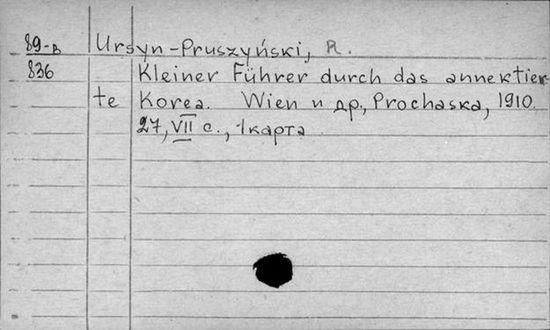 89-в Ursyn-Pruszyński, R.
836 Kleiner Führer durch das annektier
te Korea. Wien и др., Prochaska, 1910.
27, VII с., 1карта